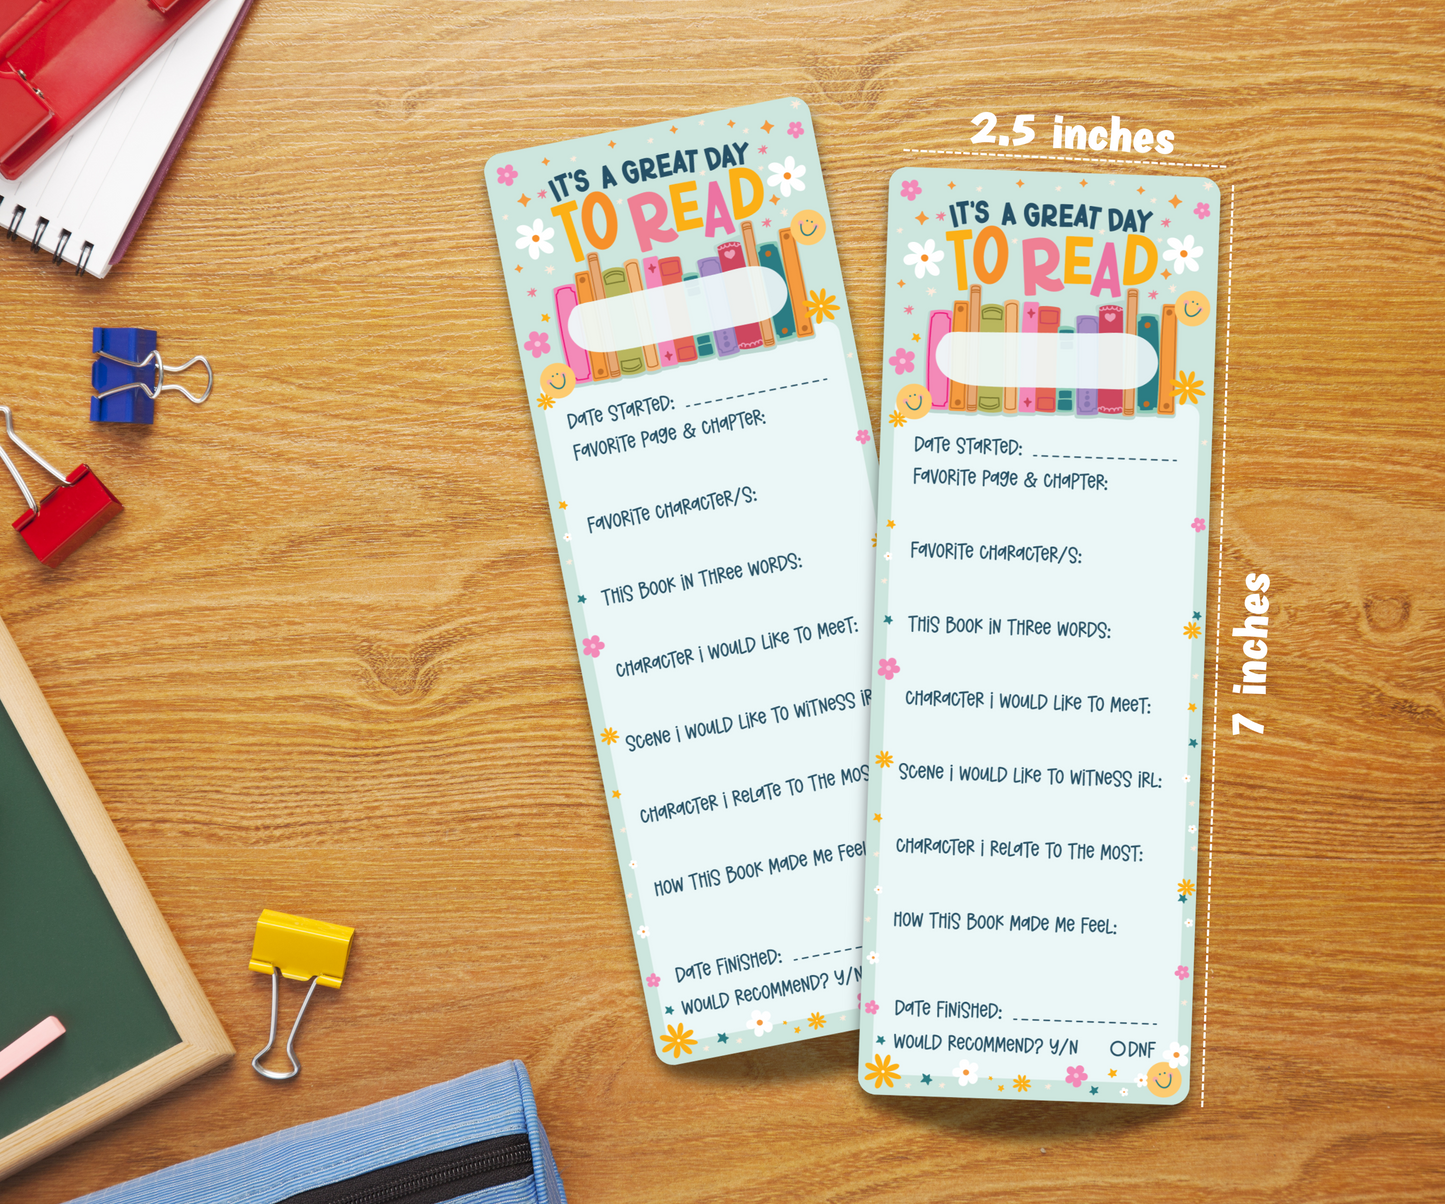 IT'S A GREAT DAY
TO READ
DATE STARTED:
FAVORITE PAGE & CHAPTER:
FAVORITE CHARACTER/S:
THIS BOOK IN THREE WORDS:
CHARACTER I WOULD LIKE TO MEET:
SCENE I WOULD LIKE TO WITNESS
CHARACTER I RELATE TO THE
HOW THIS BOOK MADE ME FEEL
DATE FINISHED:
WOULD RECOMMEND? Y/N
2.5 inches
IT'S A GREAT DAY
TO READ
DATE STARTED:
FAVORITE PAGE & CHAPTER:
FAVORITE CHARACTER/S:
THIS BOOK IN THREE WORDS:
CHARACTER I WOULD LIKE TO MEET:
SCENE I WOULD LIKE TO WITNESS IRL:
CHARACTER I RELATE TO THE MOST:
HOW THIS BOOK MADE ME FEEL:
DATE FINISHED:
WOULD RECOMMEND? Y/N DNF
7 inches